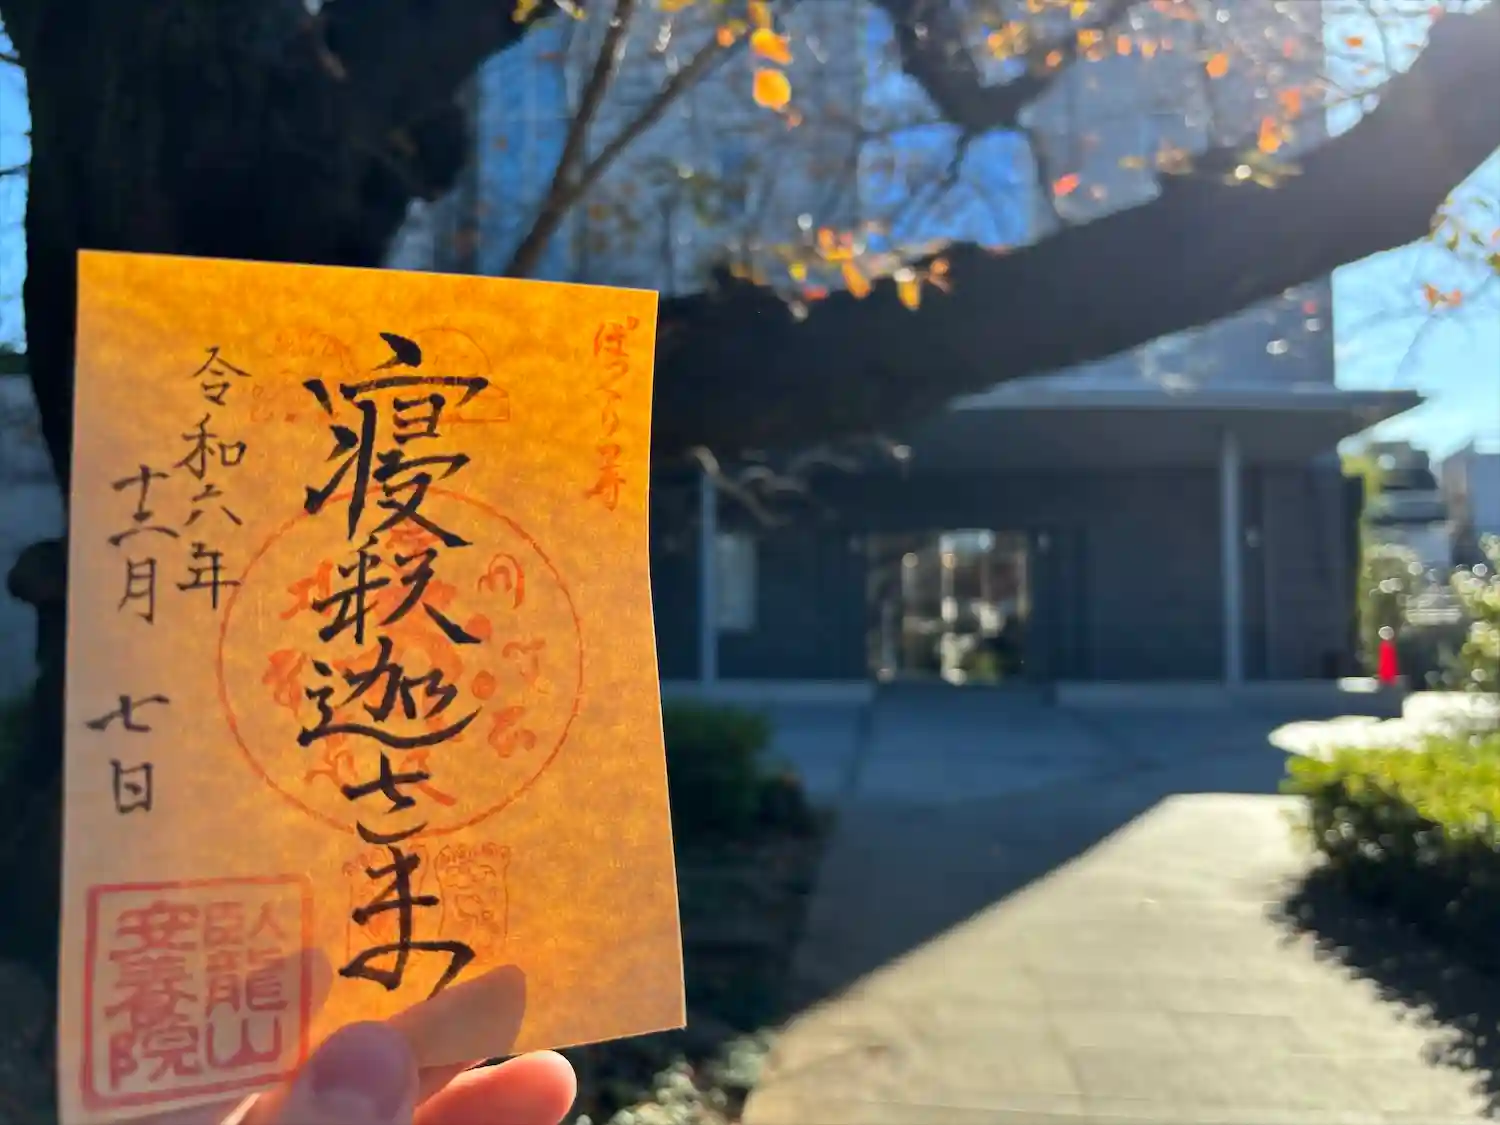 ぽっくり寺
寝釈迦さま
令和六年
十二月 七日
臥龍山
安養院